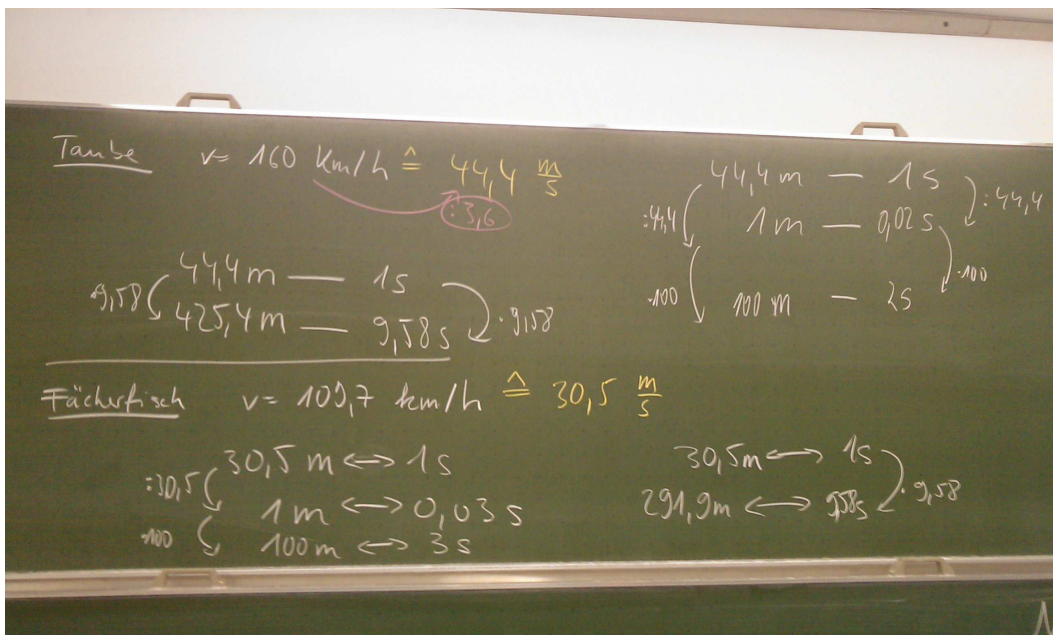 Taube v= 160 km/h ≙ 44,4 m/s
:3,6
44,4 m — 1s
·9,58 425,4 m — 9,58 s ·9,58
44,4 m — 1s
:44,4 1 m — 0,02 s :44,4
·100 100 m — 2s ·100
Fächerfisch v= 109,7 km/h ≙ 30,5 m/s
30,5 m ↔ 1s
:30,5 1 m ↔ 0,03 s
·100 100 m ↔ 3 s
30,5 m ↔ 1s
291,9 m ↔ 9,58s ·9,58